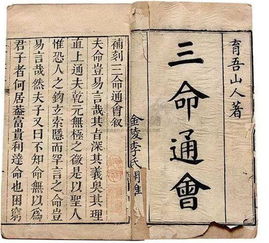 育吾山人著
三命通會
金陵李氏
補刻三命通會叙
夫命豈易言哉其旨深其義奧其理
直上通夫乾元無極之微是以聖人
惟恐人之鉤玄索隱而罕言之命豈
易言哉然夫子又曰不知命無以爲
君子者何居蓋富貴利達命也困窮